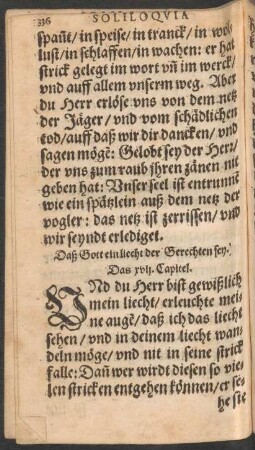 336 SOLILOQVIA
spañt/in speise/in tranck/in wol-
lust/in schlaffen/in wachen: er hat
strick gelegt im wort vñ im werck/
vnd auff allem vnserm weg. Aber
du Herr erlöse vns von dem netz
der Jäger/ vnd vom schädlichen
tod/auff daß wir dir dancken/vnd
sagen mögẽ: Gelobt sey der Herr/
der vns zum raub jhren zänen nit
geben hat: Vnser seel ist entrunnẽ
wie ein spätzlein auß dem netz der
vogler: das netz ist zerrissen/vnd
wir seyndt erlediget.
Daß Gott ein liecht der Gerechten sey.
Das xvij. Capitel.
VNd du Herr bist gewißlich
mein liecht/erleuchte mei-
ne augẽ/daß ich das liecht
sehen/vnd in deinem liecht wan-
deln möge/vnd nit in seine strick
falle: Dañ wer wirdt diesen so vie-
len stricken entgehen können/er se-
he sie